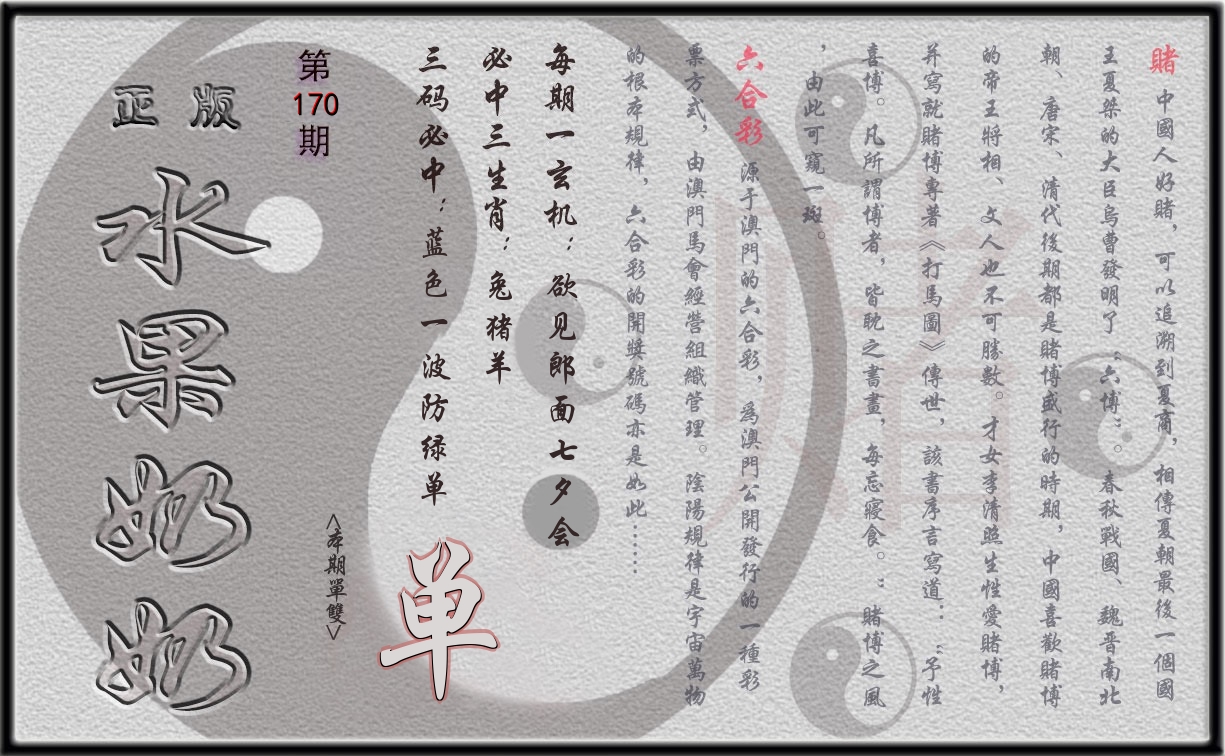 賭 中國人好賭，可以追溯到夏商，相傳夏朝最後一個國
王夏桀的大臣烏曹發明了“六博”。春秋戰國、魏晋南北
朝、唐宋、清代後期都是賭博盛行的時期，中國喜歡賭博
的帝王將相、文人也不可勝數。才女李清照生性愛賭博，
并寫就賭博專著《打馬圖》傳世，該書序言寫道：“予性
喜博。凡所謂博者，皆耽之書畫，每忘寢食。”賭博之風
，由此可窺一斑。
六合彩 源于澳門的六合彩，為澳門公開發行的一種彩
票方式，由澳門馬會經營組織管理。陰陽規律是宇宙萬物
的根本規律，六合彩的開獎號碼亦是如此……
每期一玄机：欲见郎面七夕会
必中三生肖：兔猪羊
三码必中：蓝色一波防绿单
单
<本期單雙>
第
170
期
正版
水果奶奶
賭